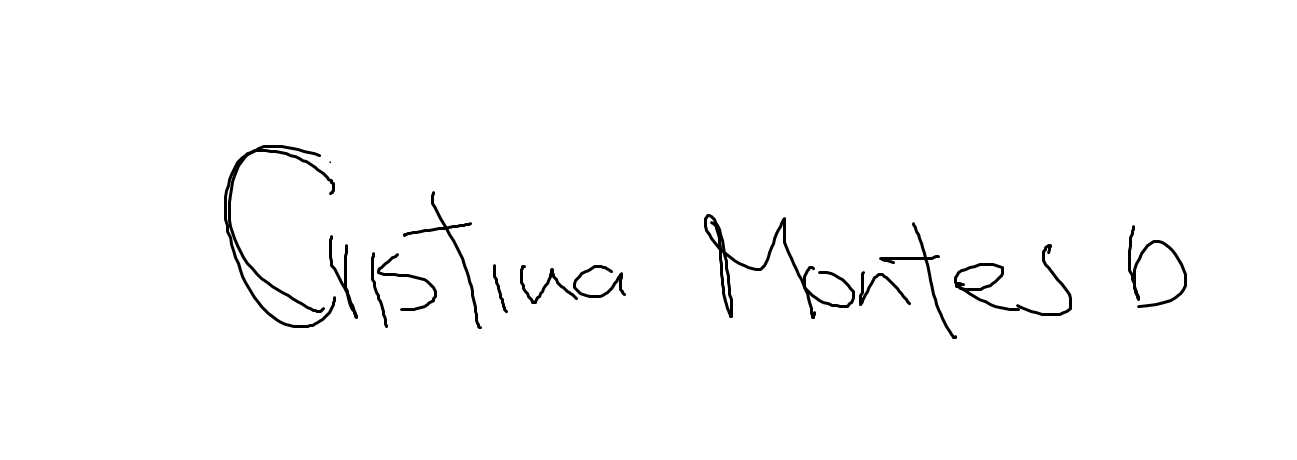 Cristina Montes D